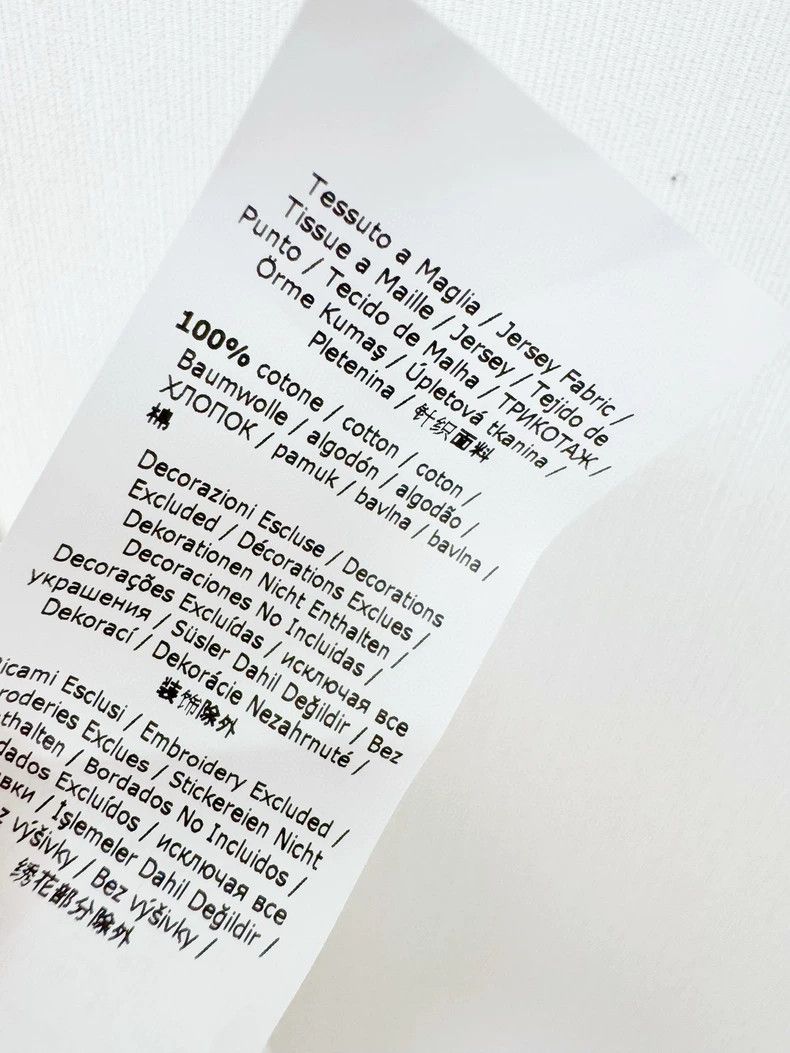 Tessuto a Maglia / Jersey Fabric /
Tissue a Maille / Jersey / Tejido de
Punto / Tecido de Malha / ТРИКОТАЖ /
Örme Kumaş / Úpletová tkanina /
Pletenina / 针织面料
100% cotone / cotton / coton /
Baumwolle / algodón / algodão /
ХЛОПОК / pamuk / bavlna / bavlna /
棉
Decorazioni Escluse / Decorations
Excluded / Décorations Exclues /
Dekorationen Nicht Enthalten /
Decoraciones No Incluidas /
Decorações Excluídas / исключая все
украшения / Süsler Dahil Değildir / Bez
Dekorací / Dekorácie Nezahrnuté /
装饰除外
Esclusi / Embroidery Excluded /
Exclues / Stickereien Nicht
/ Bordados No Incluidos /
Excluídos / исключая все
/ İşlemeler Dahil Değildir /
výšivky / Bez výšivky /
绣花部分除外